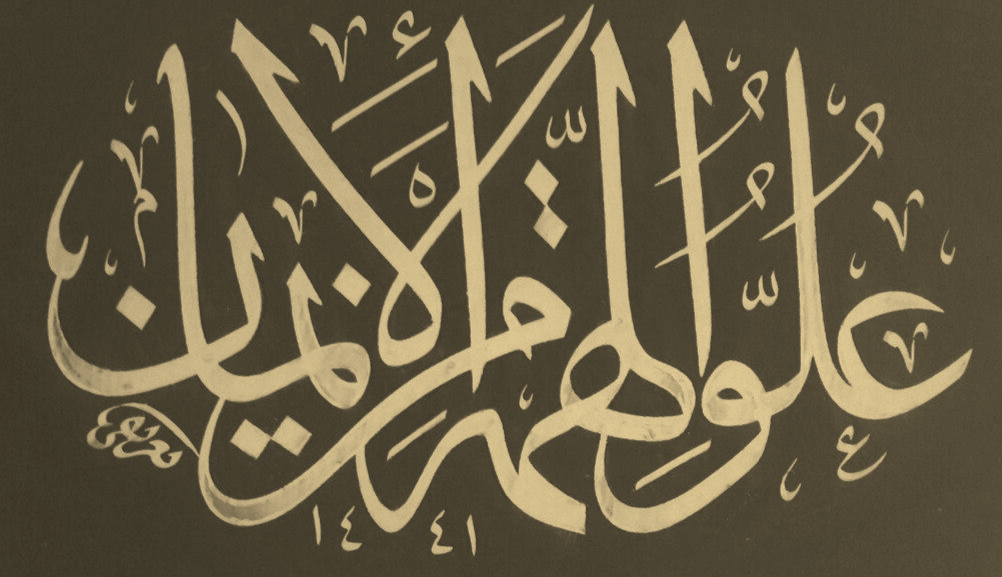 عُلُوُّ الْهِمَّةِ مِنَ الْإِيمَانِ
١٤٤١